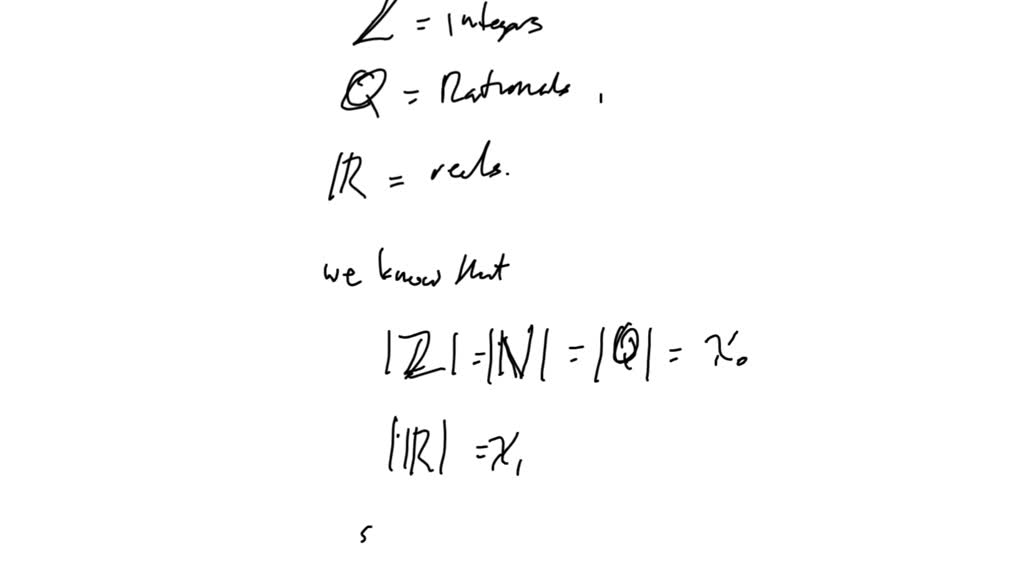 ℤ = Integers
ℚ = Rationals,
ℝ = reals.
we know that
|ℤ| = |ℕ| = |ℚ| = ℵ₀
|ℝ| = ℵ₁
s